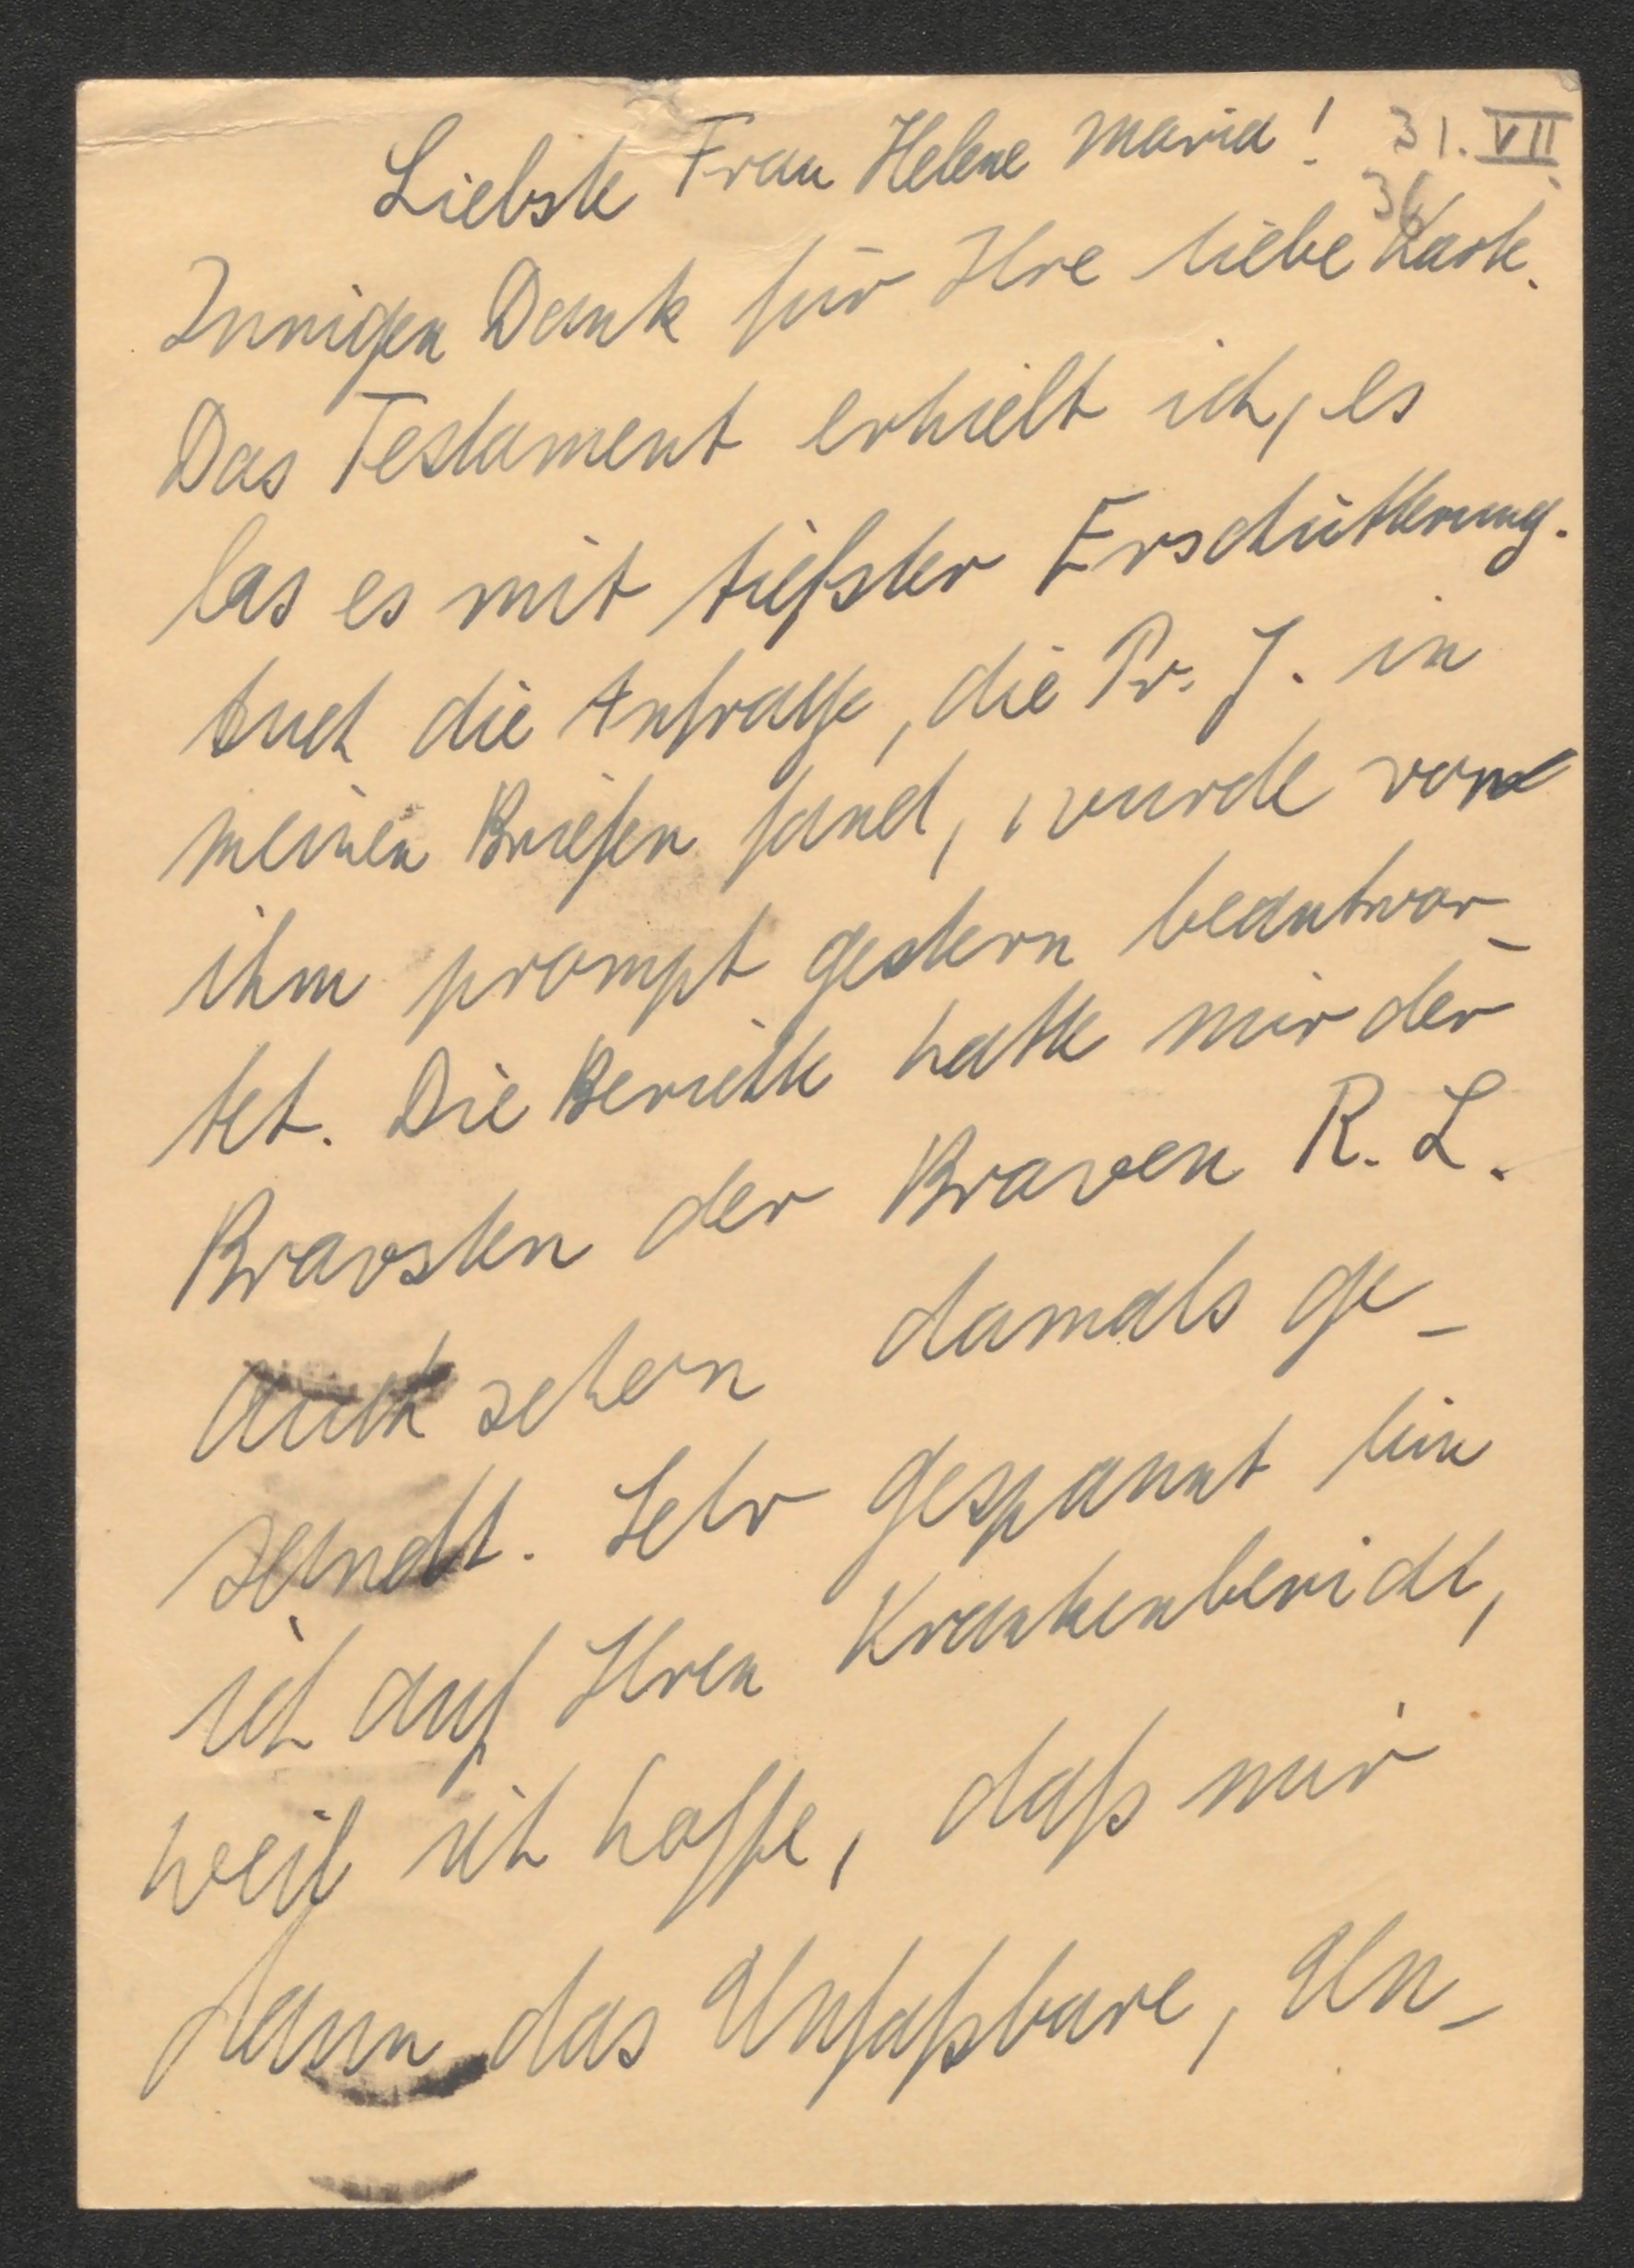 Liebste Frau Helene Maria! 31. VII.
36
Innigen Dank für Ihre liebe Karte.
Das Testament erhielt ich, es
las es mit tiefster Erschütterung.
Auch die Anfrage, die Pr. J. in
meinen Briefen fand, wurde von
ihm prompt gestern beantwor-
tet. Die Berichte hatte mir der
Bravsten der Braven R. L.
auch schon damals ge-
sendt. Sehr gespannt bin
ich auf Ihren Krankenbericht,
weil ich hoffe, daß mir
dann das Unfaßbare, Un-